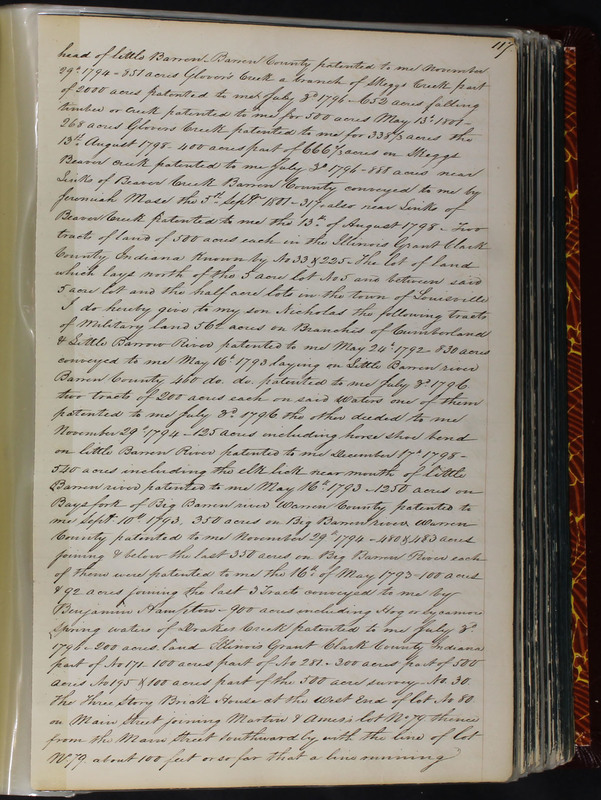 117
head of little Barron Barren County patented to me November
29th 1794 - 851 acres Glovers Creek a branch of Skeggs Creek part
of 2000 acres patented to me July 8d 1796 - 652 acres falling
timber or creek patented to me for 500 acres May 13th 1801 -
268 acres Glovers Creek patented to me for 338⅓ acres the
13th August 1798 - 400 acres part of 666⅔ acres on Skeggs
Beaver creek patented to me July 3d 1796 - 888 acres near
Sinks of Beaver Creek Barren County conveyed to me by
Jeremiah Mase the 5th Septr 1801 - 317 also near Sinks of
Beaver Creek patented to me the 13th of August 1798 - Two
tracts of land of 500 acres each in the Illinois Grant Clark
County Indiana known by No 33 & 225 - The lot of land
which lays north of the 5 acre lot No 5 and between said
5 acre lot and the half acre lots in the town of Louisville
I do hereby give to my son Nicholas the following tracts
of Military land 362 acres on Branches of Cumberland
& Little Barrow River patented to me May 24th 1792 - 830 acres
conveyed to me May 16th 1793 laying on Little Barren river
Barren County 460 do. do. patented to me July 8d 1796
two tracts of 200 acres each on said waters one of them
patented to me July 8d 1796 the other deeded to me
November 29th 1794 - 125 acres including horse shoe bend
on little Barren River patented to me December 17th 1798 -
540 acres including the elk lick near mouth of Little
Barren river patented to me May 16th 1793 - 1250 acres on
Bays fork of Big Barren river Warren County patented to
me Septr 10th 1793. 350 acres on Big Barren river, Warren
County patented to me November 29th 1794 - 480 & 483 acres
joining & below the last 350 acres on Big Barren River each
of them were patented to me the 16th of May 1793 - 100 acres
& 92 acres joining the last 3 Tracts conveyed to me by
Benjamin Hampton - 900 acres including Hog or Sycamore
Spring waters of Drakes Creek patented to me July 8d
1796 - 200 acres land Illinois Grant Clark County Indiana
part of No 171 - 100 acres part of No 281 - 300 acres part of 500
acres No 195 & 100 acres part of the 500 acre survey No. 30.
The Three Story Brick House at the West End of lot No 80
on Main Street joining Martin & Ames's lot No 79 thence
from the Main Street Southwardly with the line of lot
No 79, about 100 feet or so far that a line running